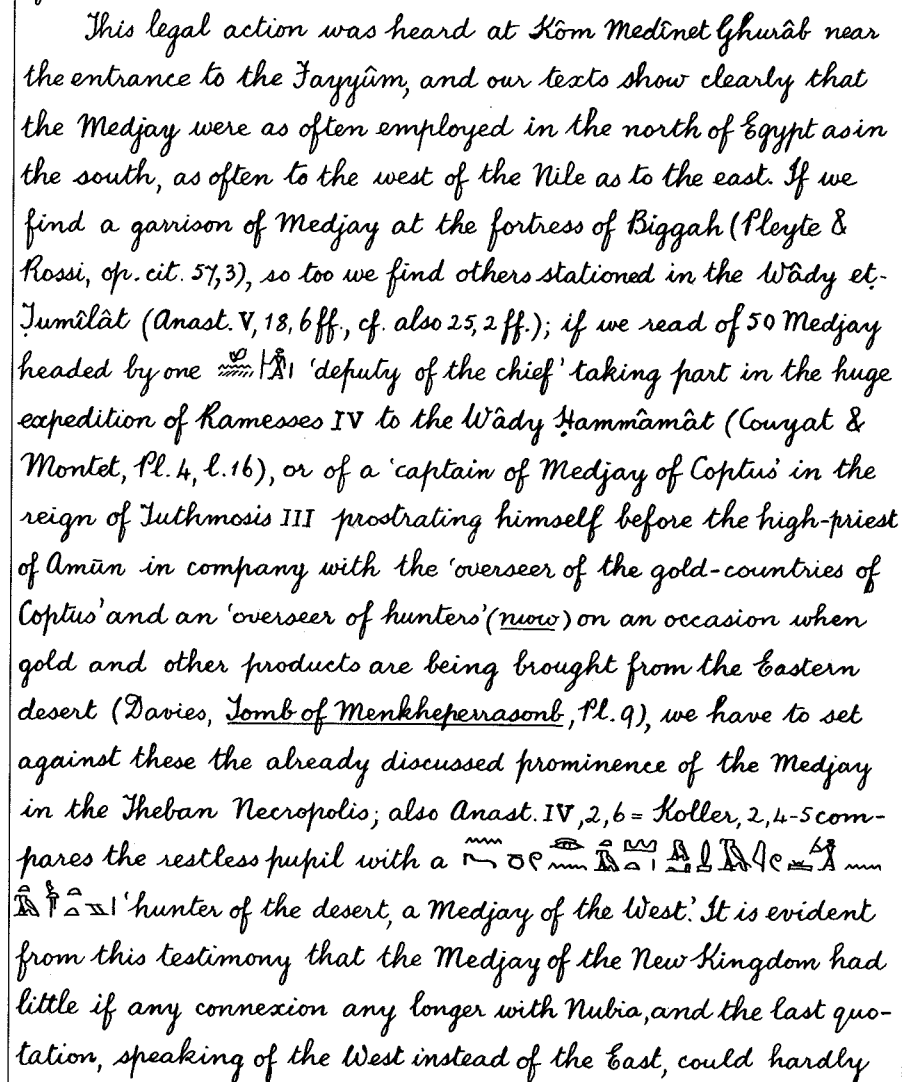 This legal action was heard at Kôm Medînet Ghurâb near
the entrance to the Fayyûm, and our texts show clearly that
the Medjay were as often employed in the north of Egypt as in
the south, as often to the west of the Nile as to the east. If we
find a garrison of Medjay at the fortress of Biggah (Pleyte &
Rossi, op. cit. 57,3), so too we find others stationed in the Wâdy eṭ-
Ṭumîlât (Anast. V, 18, 6 ff., cf. also 25, 2 ff.); if we read of 50 Medjay
headed by one 'deputy of the chief' taking part in the huge
expedition of Ramesses IV to the Wâdy Ḥammâmât (Couyat &
Montet, Pl. 4, l. 16), or of a 'captain of Medjay of Coptus' in the
reign of Tuthmosis III prostrating himself before the high-priest
of Amūn in company with the 'overseer of the gold-countries of
Coptus' and an 'overseer of hunters' (nuow) on an occasion when
gold and other products are being brought from the Eastern
desert (Davies, Tomb of Menkheperrasonb, Pl. 9), we have to set
against these the already discussed prominence of the Medjay
in the Theban Necropolis; also Anast. IV, 2, 6 = Koller, 2, 4-5 com-
pares the restless pupil with a
'hunter of the desert, a Medjay of the West.' It is evident
from this testimony that the Medjay of the New Kingdom had
little if any connexion any longer with Nubia, and the last quo-
tation, speaking of the West instead of the East, could hardly